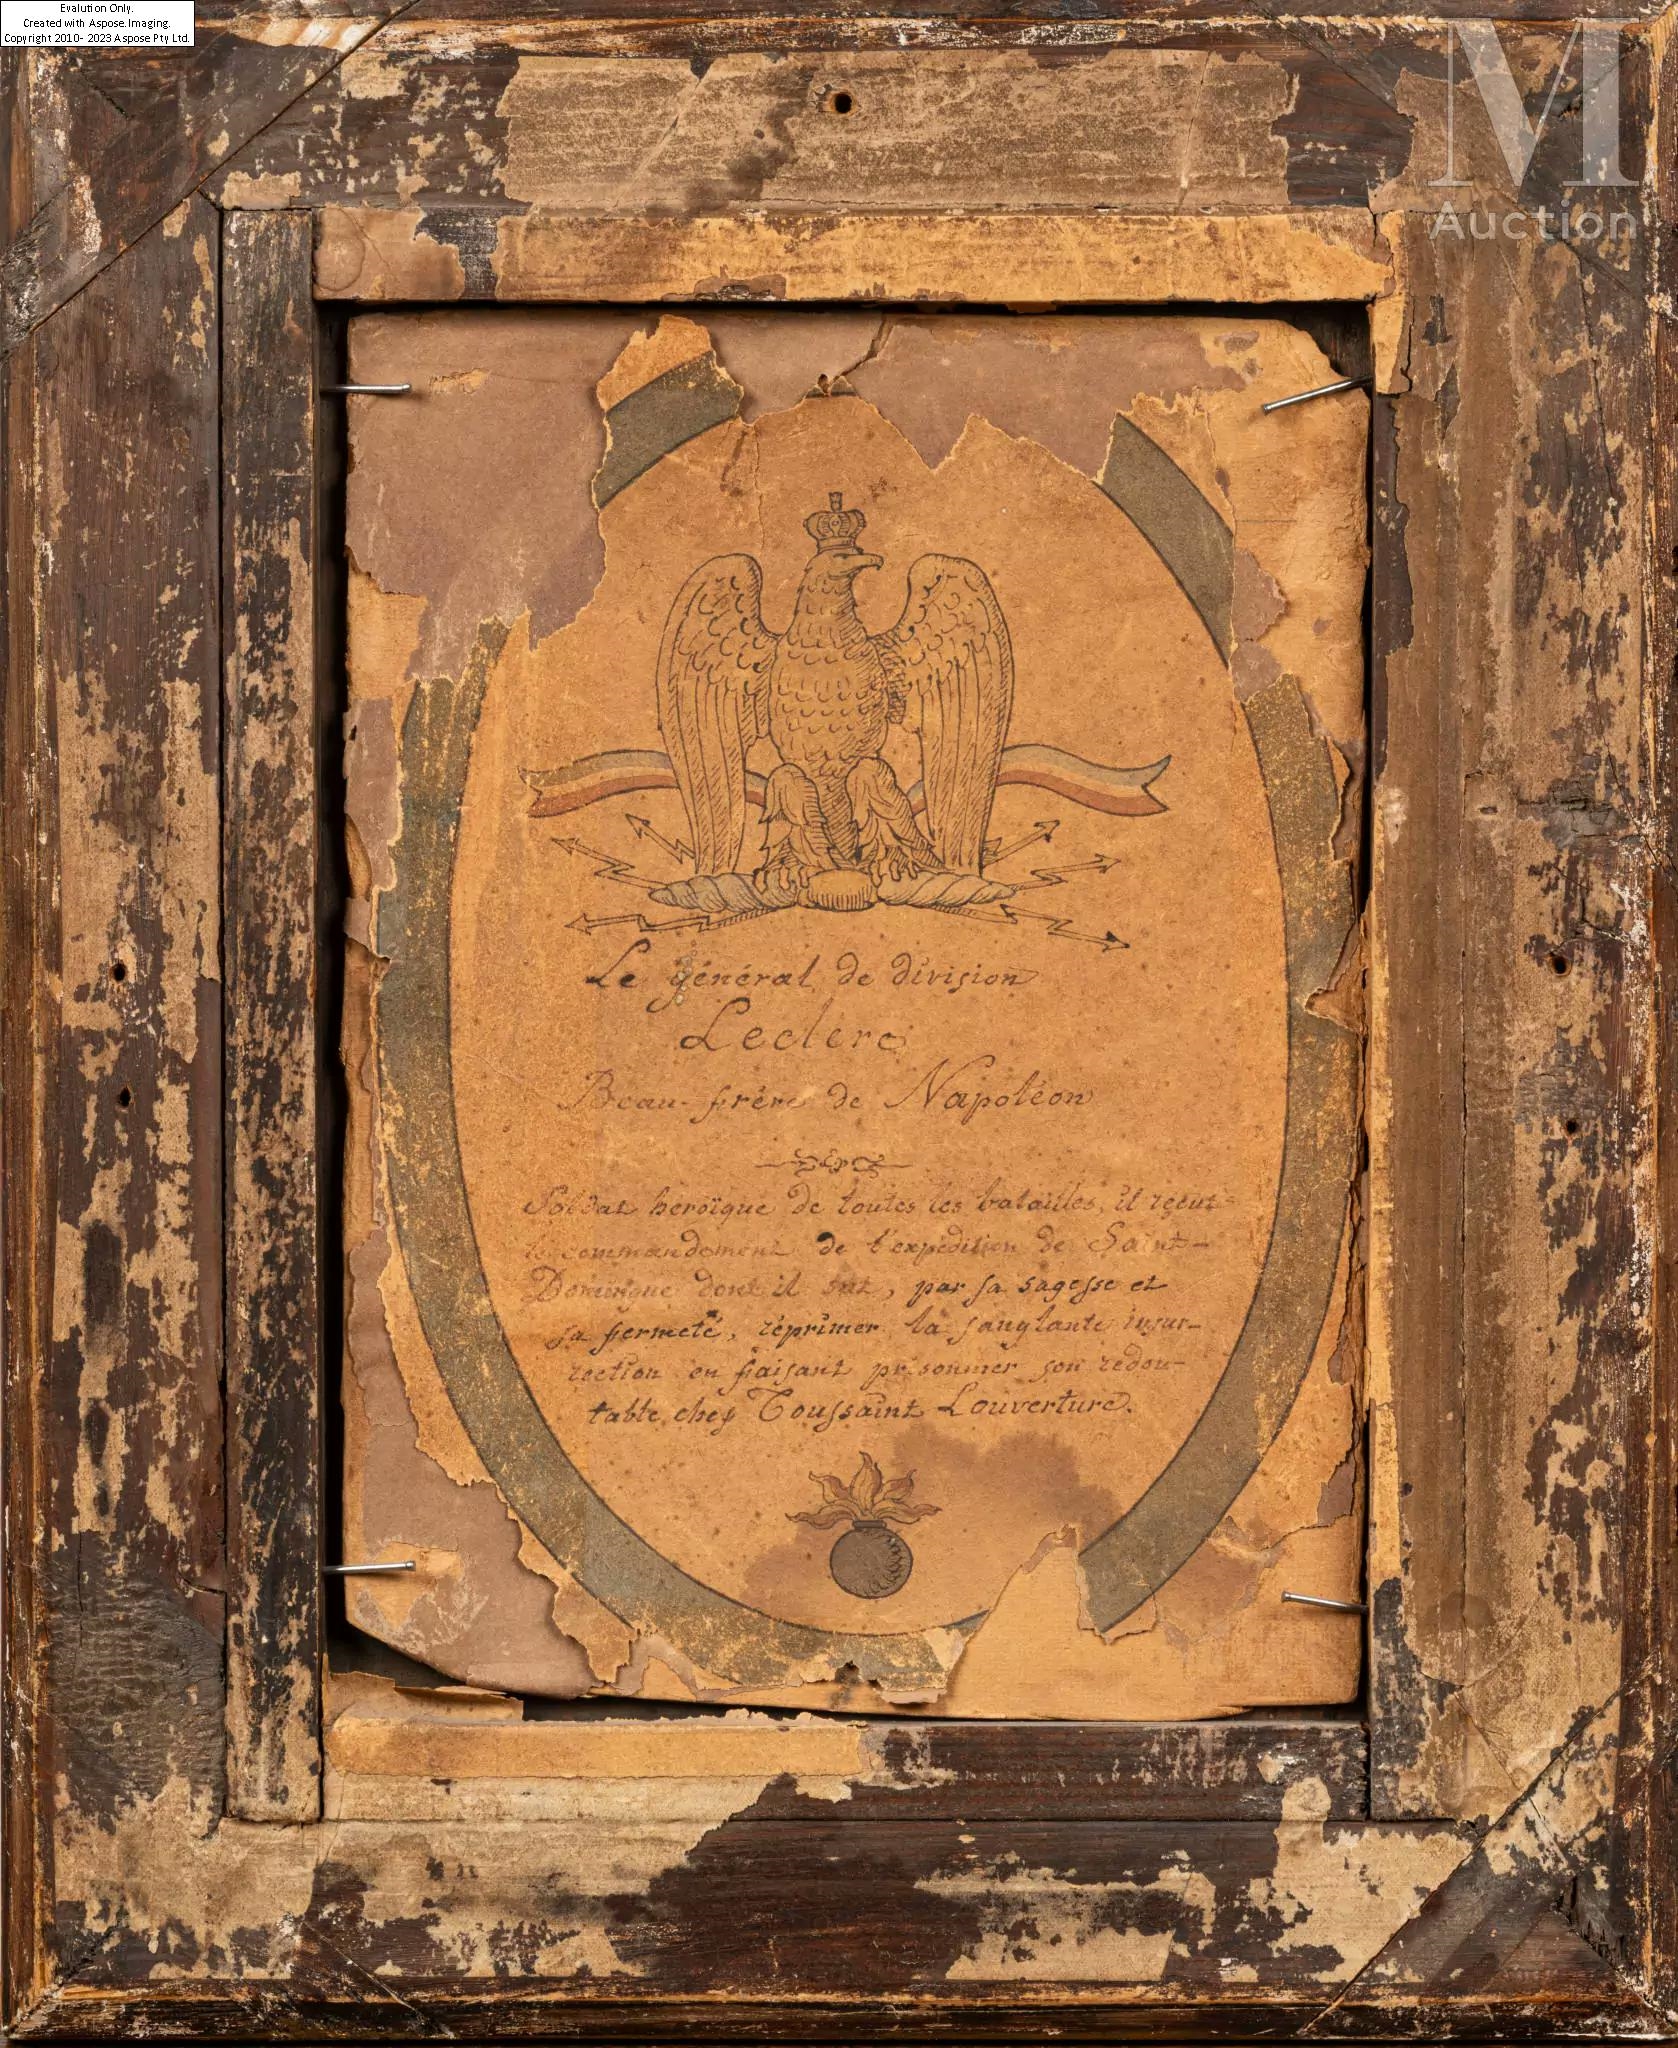 Evalution Only.
Created with Aspose.Imaging.
Copyright 2010- 2023 Aspose Pty Ltd.
M
Auction
Le général de division
Leclerc
Beau-frère de Napoléon
Soldat heroïque de toutes les batailles, il reçut
le commandement de l'expédition de Saint-
Domingue dont il sut, par sa sagesse et
sa fermeté, réprimer la sanglante insur-
rection en faisant prisonnier son redou-
table chef Toussaint Louverture.